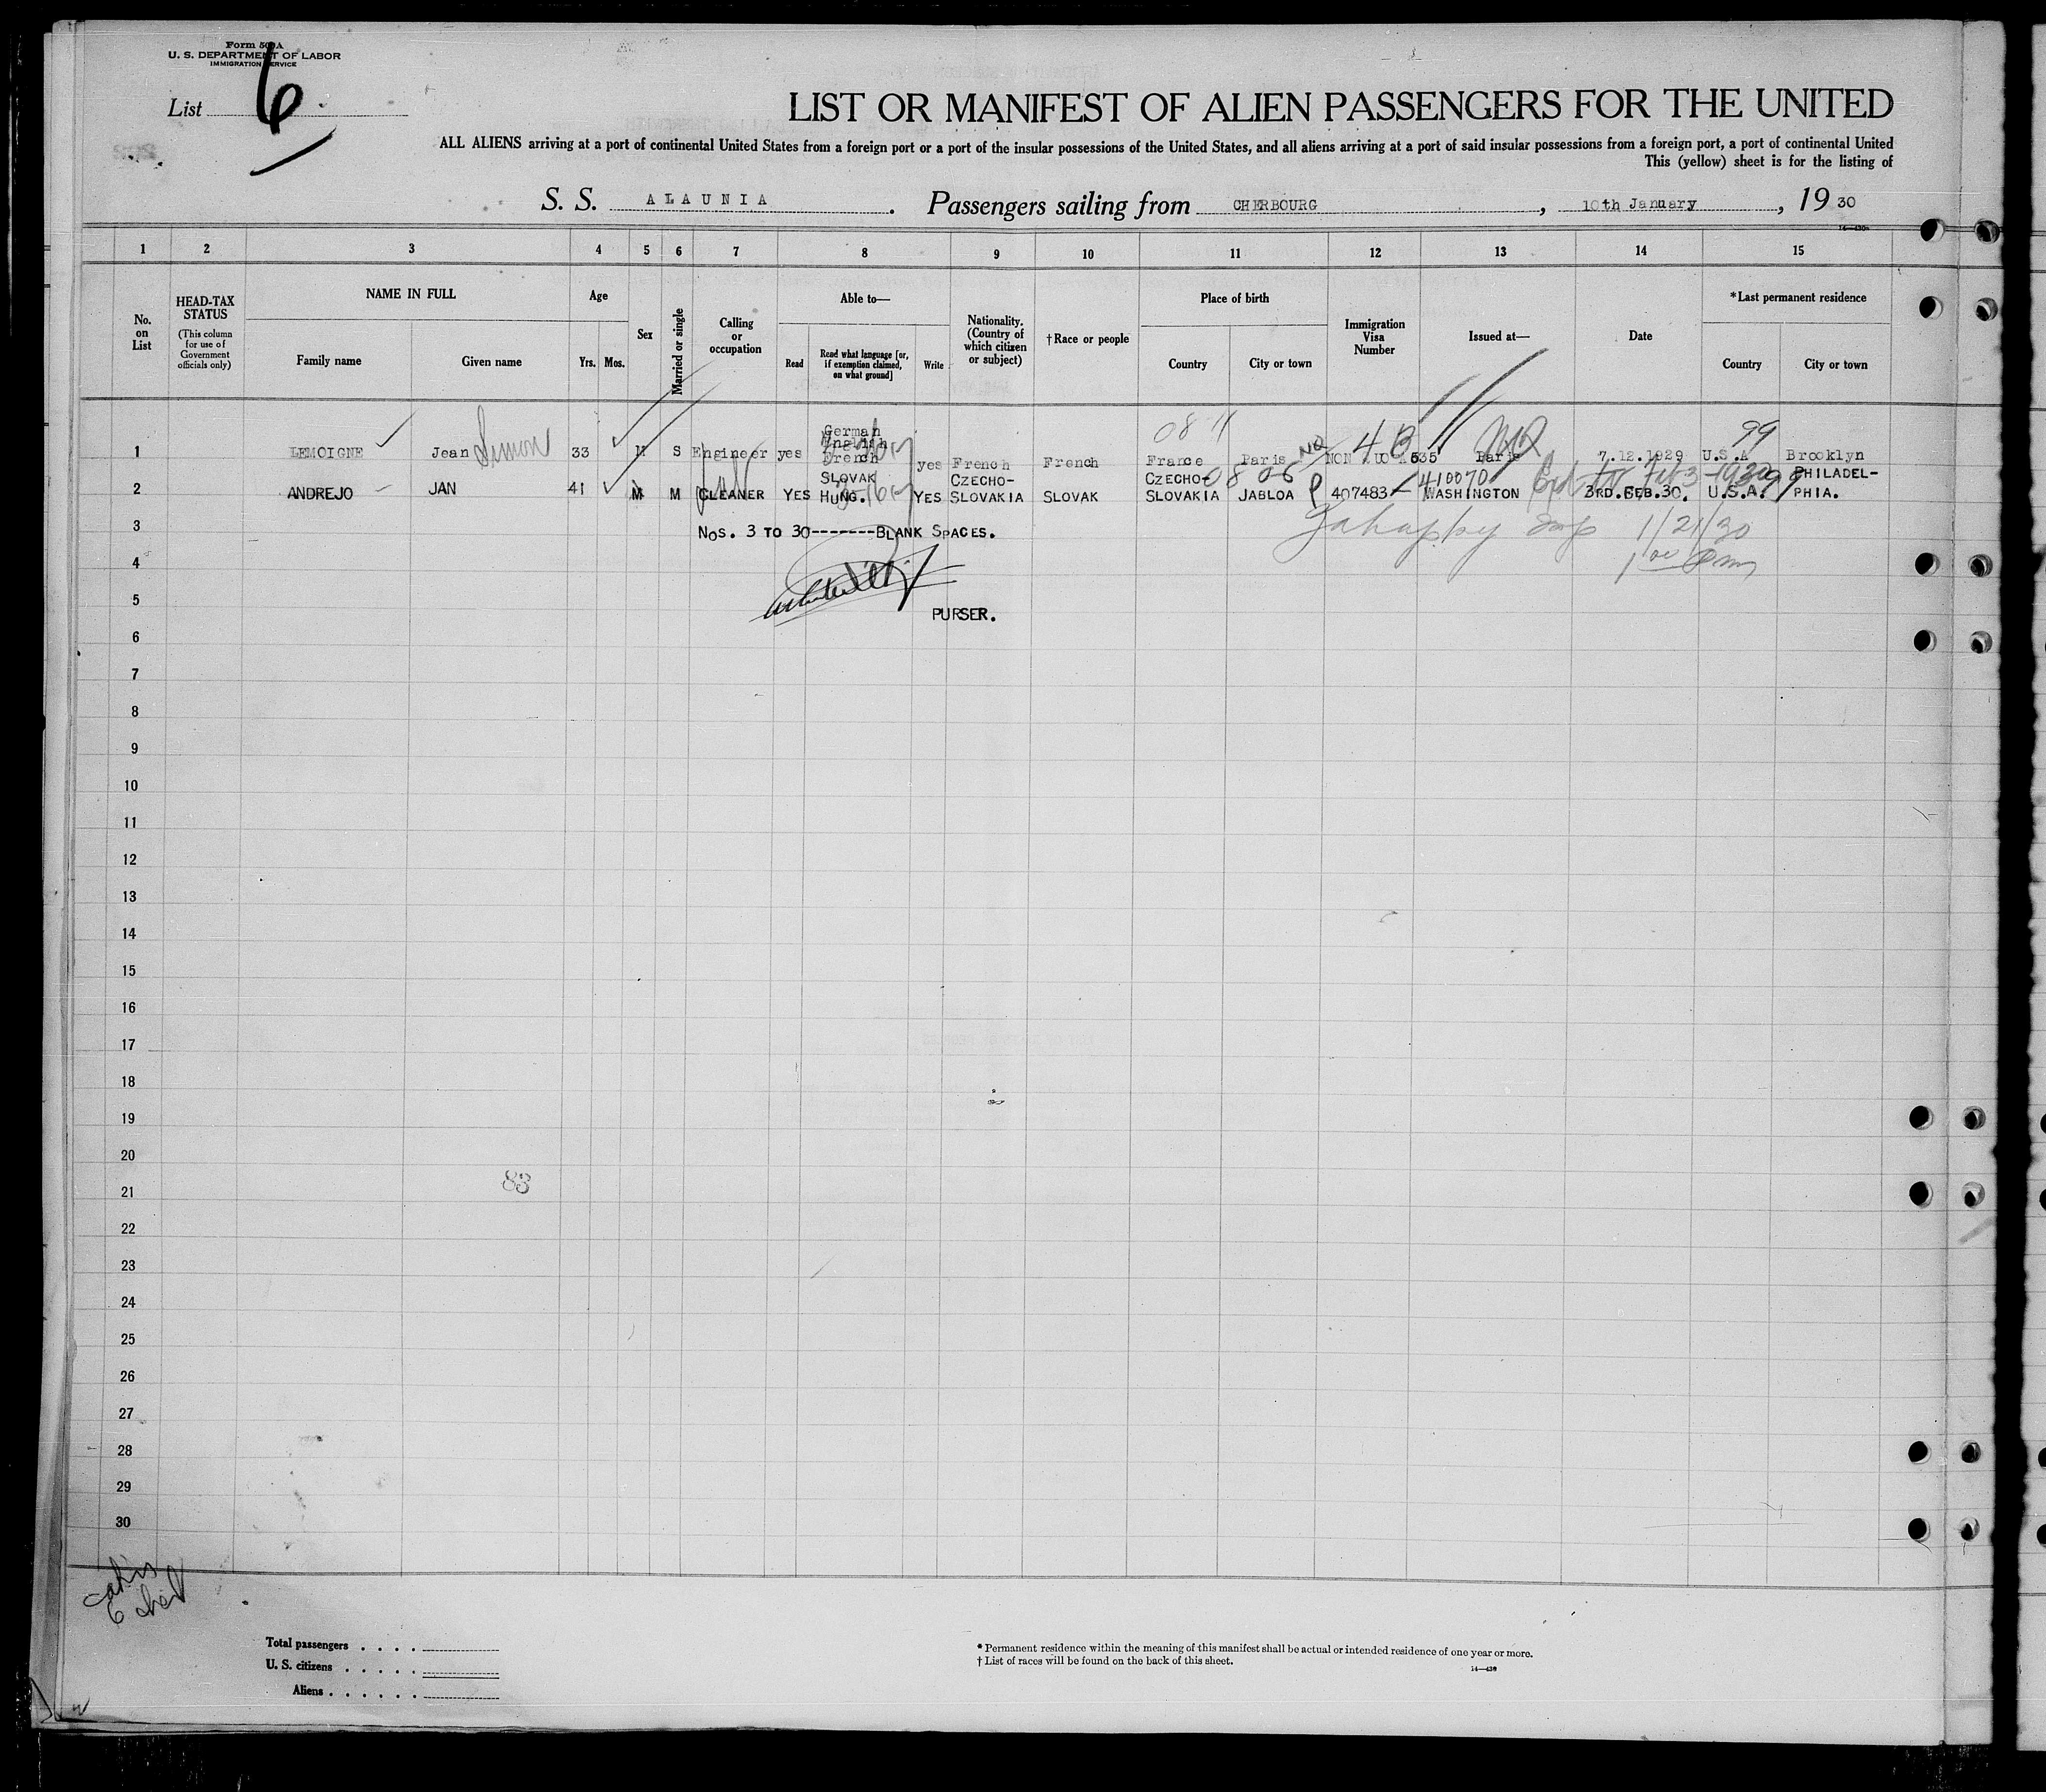 Form 500A
U. S. DEPARTMENT OF LABOR
IMMIGRATION SERVICE
List 6
LIST OR MANIFEST OF ALIEN PASSENGERS FOR THE UNITED
ALL ALIENS arriving at a port of continental United States from a foreign port or a port of the insular possessions of the United States, and all aliens arriving at a port of said insular possessions from a foreign port, a port of continental United
This (yellow) sheet is for the listing of
S. S. ALAUNIA. Passengers sailing from CHERBOURG, 10th January, 1930
1 2 3 4 5 6 7 8 9 10 11 12 13 14 15
No. on List
HEAD-TAX STATUS
(This column for use of Government officials only)
NAME IN FULL
Family name
Given name
Age
Yrs. Mos.
Sex
Married or single
Calling or occupation
Able to—
Read
Read what language [or, if exemption claimed, on what ground]
Write
Nationality. (Country of which citizen or subject)
†Race or people
Place of birth
Country
City or town
Immigration Visa Number
Issued at—
Date
*Last permanent residence
Country
City or town
08 11 99
1 LEMOIGNE Jean Simon 33 M S Engineer yes German English French yes French French France Paris NON 535 Paris 7.12.1929 U.S.A Brooklyn
4 B
410070
0806
2 ANDREJO JAN 41 M M CLEANER YES SLOVAK HUNG. YES CZECHO-SLOVAKIA SLOVAK CZECHO-SLOVAKIA JABLOA 407483 WASHINGTON 3RD.FEB.30. U.S.A. PHILADEL-PHIA.
3 NOS. 3 TO 30-------BLANK SPACES.
1/21/30
4
5
PURSER.
6
7
8
9
10
11
12
13
14
15
16
17
18
19
20
83
21
22
23
24
25
26
27
28
29
30
Total passengers . . . .
U. S. citizens . . . . .
Aliens . . . . . .
* Permanent residence within the meaning of this manifest shall be actual or intended residence of one year or more.
† List of races will be found on the back of this sheet.
14—430